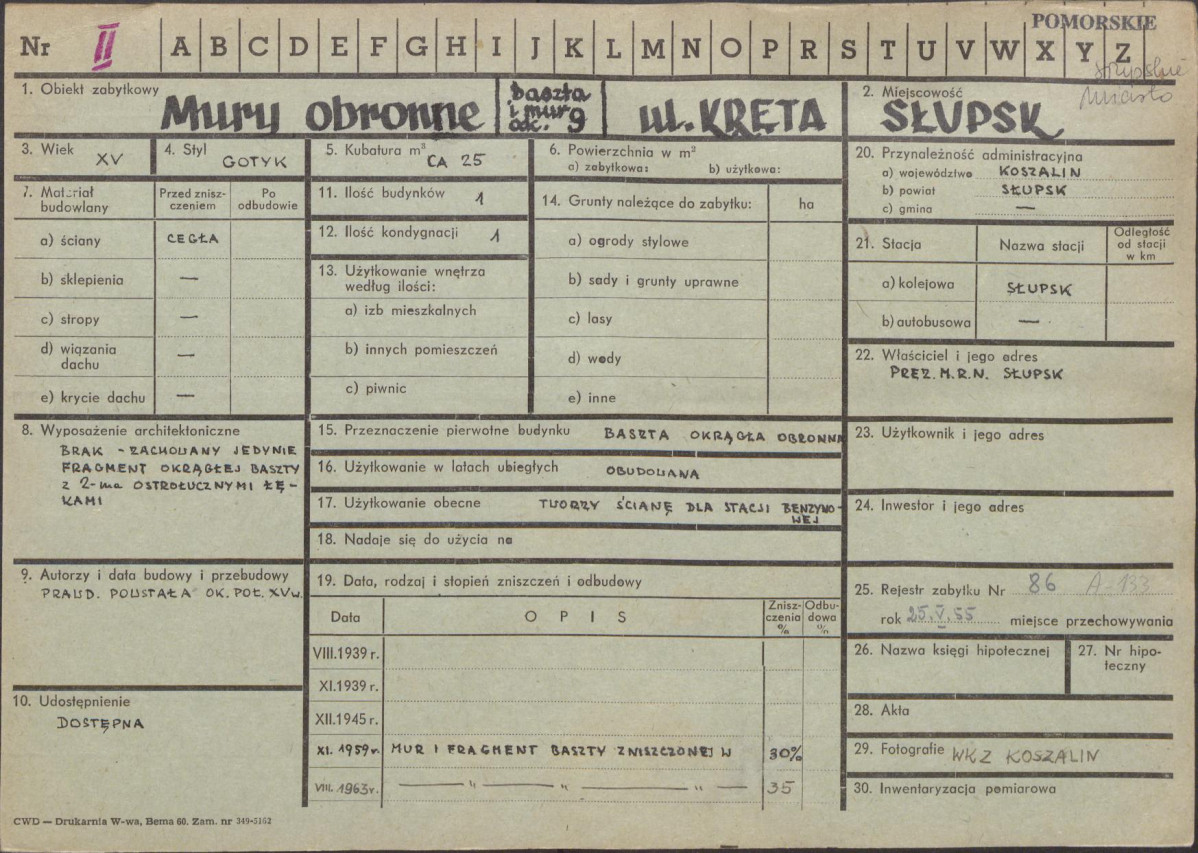 POMORSKIE
Nr II A B C D E F G H I J K L M N O P R S T U V W X Y Z
słupskie
Miasto
1. Obiekt zabytkowy
Mury obronne
baszta
i mur
odc. 9
ul. KRĘTA
2. Miejscowość
SŁUPSK
3. Wiek
XV
4. Styl
GOTYK
5. Kubatura m³
CA 25
6. Powierzchnia w m²
a) zabytkowa: b) użytkowa:
7. Materiał
budowlany
Przed znisz-
czeniem
Po
odbudowie
a) ściany CEGŁA
b) sklepienia —
c) stropy —
d) wiązania
dachu —
e) krycie dachu —
8. Wyposażenie architektoniczne
BRAK - ZACHOWANY JEDYNIE
FRAGMENT OKRĄGŁEJ BASZTY
Z 2-ma OSTROŁUCZNYMI ŁĘ-
KAMI
9. Autorzy i data budowy i przebudowy
PRAWD. POWSTAŁA OK. POŁ. XVw.
10. Udostępnienie
DOSTĘPNA
11. Ilość budynków 1
12. Ilość kondygnacji 1
13. Użytkowanie wnętrza
według ilości:
a) izb mieszkalnych
b) innych pomieszczeń
c) piwnic
14. Grunty należące do zabytku: ha
a) ogrody stylowe
b) sady i grunty uprawne
c) lasy
d) wody
e) inne
15. Przeznaczenie pierwotne budynku BASZTA OKRĄGŁA OBRONNA
16. Użytkowanie w latach ubiegłych OBUDOWANA
17. Użytkowanie obecne TWORZY ŚCIANĘ DLA STACJI BENZYNO-
WEJ
18. Nadaje się do użycia na
19. Data, rodzaj i stopień zniszczeń i odbudowy
Data
OPIS
Znisz-
czenia
%
Odbu-
dowa
%
VIII.1939 r.
XI.1939 r.
XII.1945 r.
XI. 1959 r. MUR I FRAGMENT BASZTY ZNISZCZONEJ W 30%
VIII. 1963 r. — " — " — " — 35
20. Przynależność administracyjna
a) województwo KOSZALIN
b) powiat SŁUPSK
c) gmina —
21. Stacja
Nazwa stacji
Odległość
od stacji
w km
a) kolejowa SŁUPSK
b) autobusowa —
22. Właściciel i jego adres
PREZ. M.R.N. SŁUPSK
23. Użytkownik i jego adres
24. Inwestor i jego adres
25. Rejestr zabytku Nr 86 A-133
rok 25.V.55 miejsce przechowywania
26. Nazwa księgi hipotecznej
27. Nr hipo-
teczny
28. Akta
29. Fotografie WKZ KOSZALIN
30. Inwentaryzacja pomiarowa
CWD — Drukarnia W-wa, Bema 60. Zam. nr 349-5162